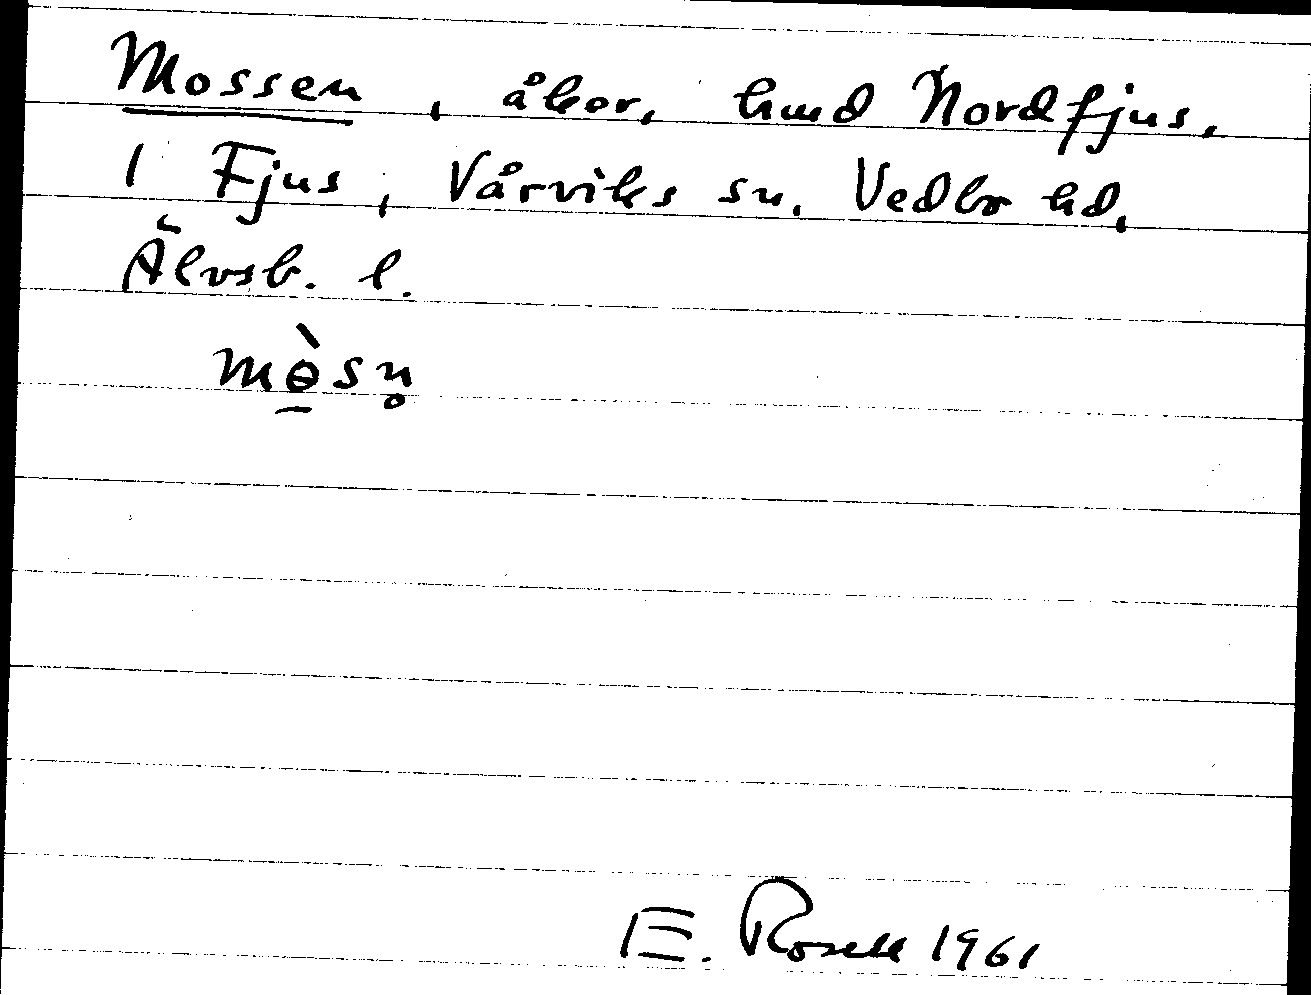 Mossen, åker, hmd Nordfjus,
1 Fjus, Vårviks sn. Vedbo hd,
Älvsb. l.
mɵ̱̀sn̥
E. Rosell 1961